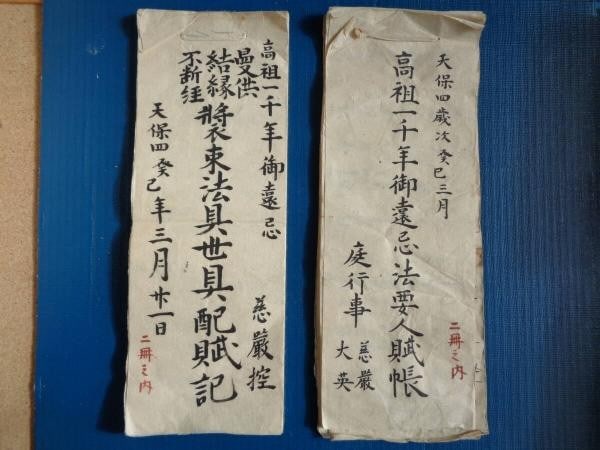 天保四歳次癸巳三月
高祖一千年御遠忌法要人賦帳
庭行事
慈嚴
大英
二冊之内
高祖一千年御遠忌
曼供
結縁
不断経
裝束法具世具配賦記
天保四癸巳年三月廿一日
慈嚴控
二冊之内